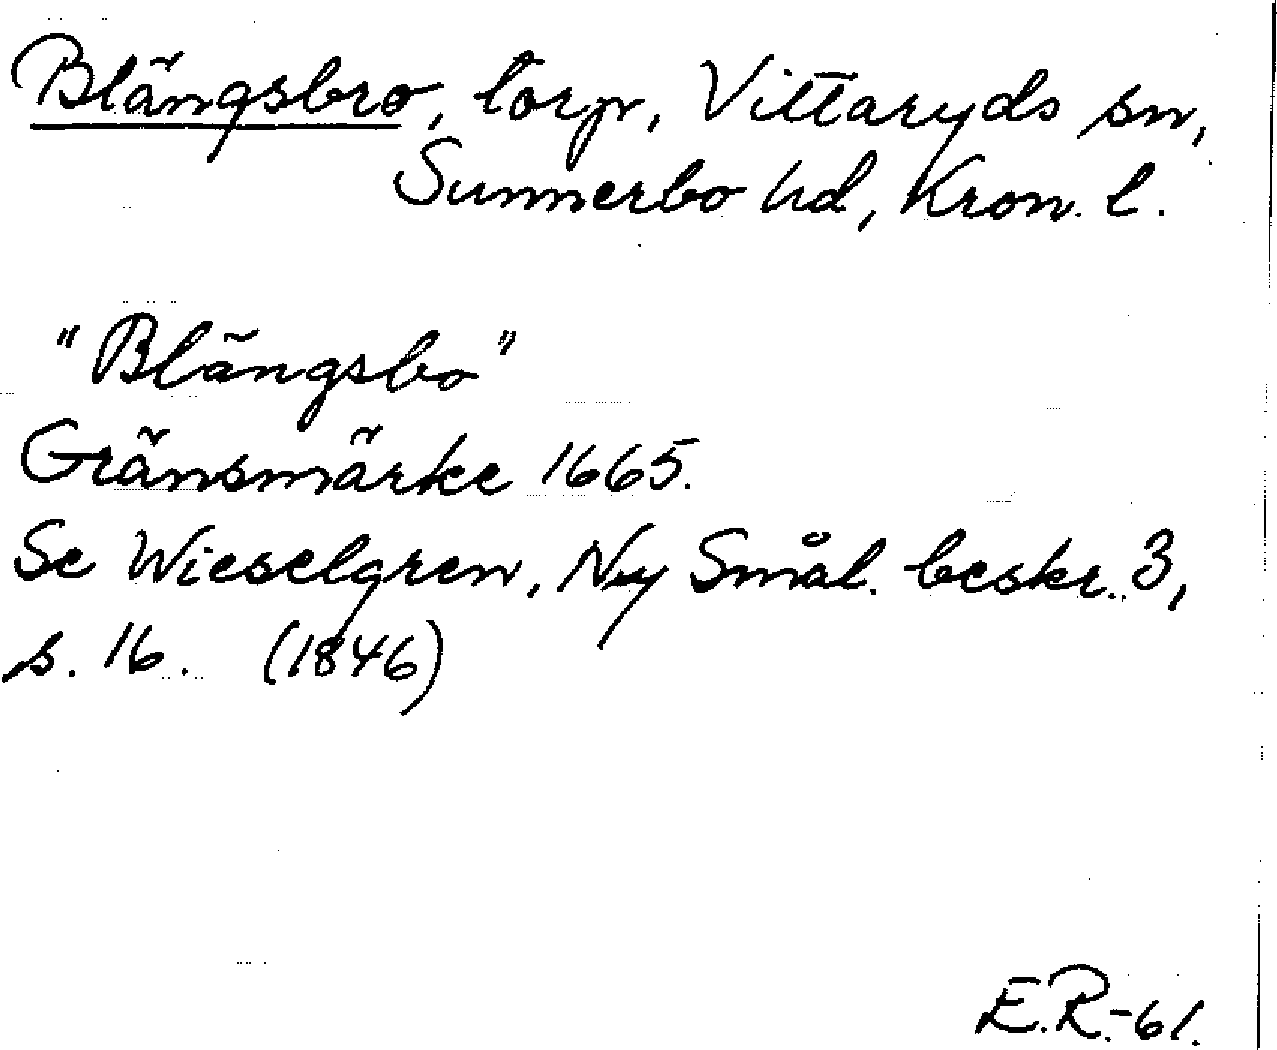 Blängsbro, torp, Vittaryds sn,
Sunnerbo hd, Kron. l.
"Blängsbo"
Gränsmärke 1665.
Se Wieselgren, Ny Smål. beskr. 3,
s. 16. (1846)
E.R.-61.